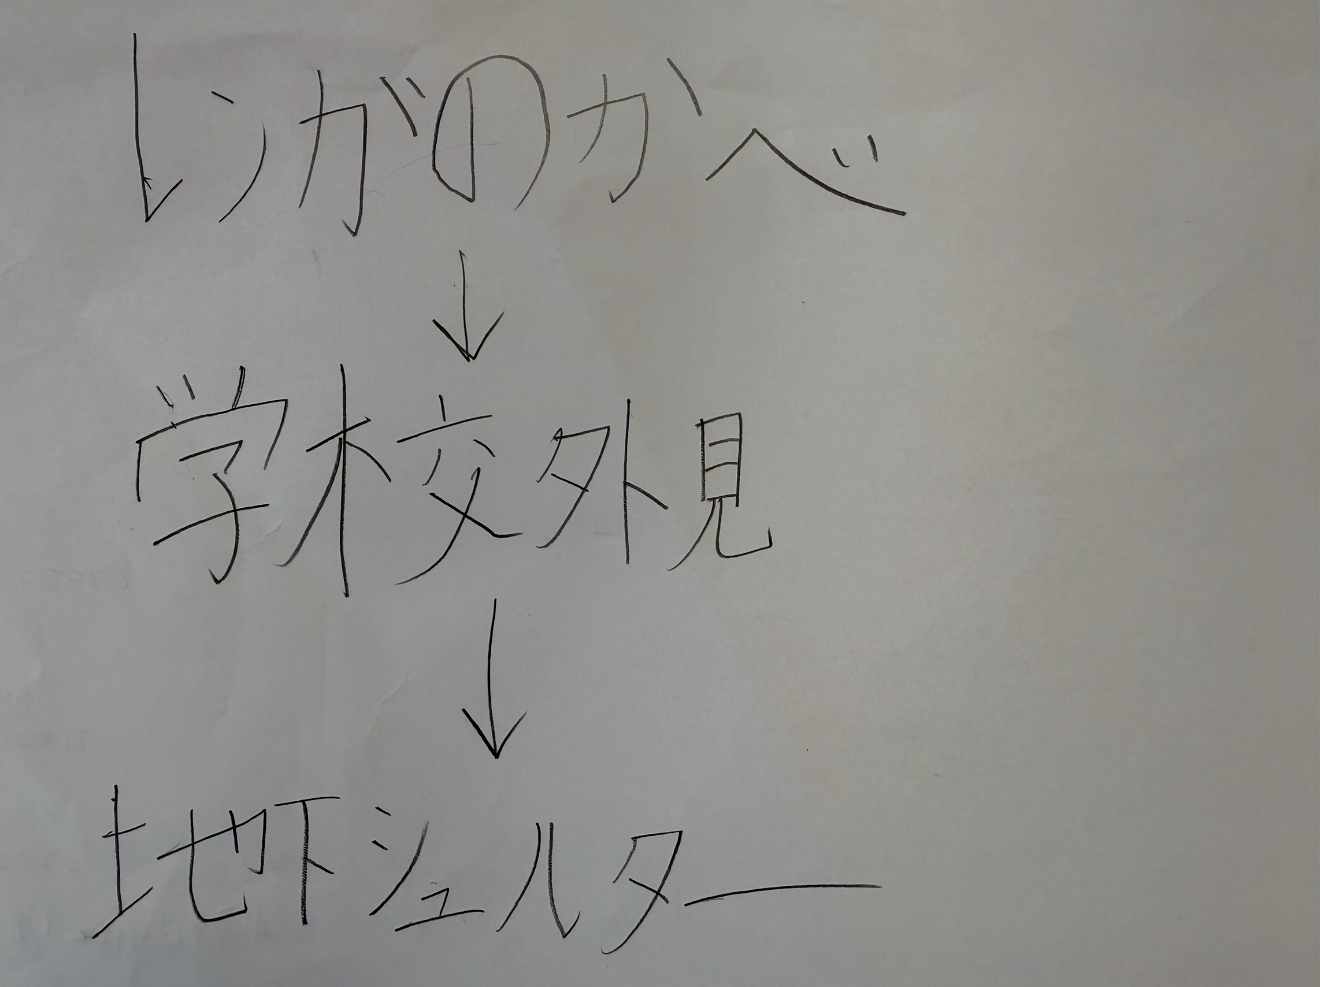 レンガのかべ
↓
学校外見
↓
地下シェルター